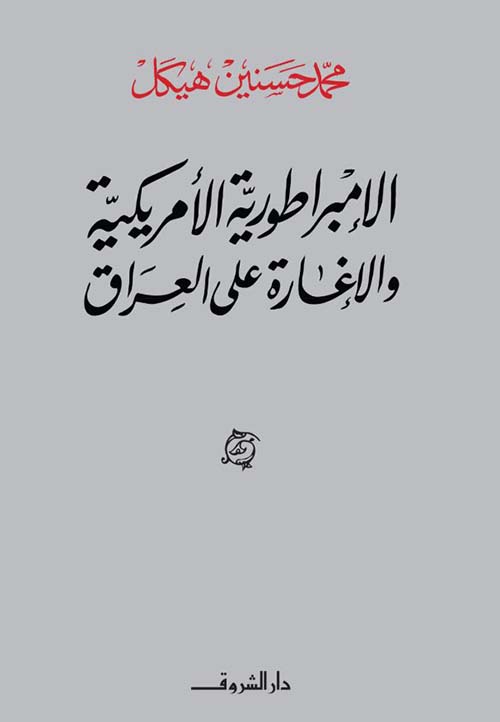 محمد حسنين هيكل
الإمبراطورية الأمريكية
والإغارة على العراق
دار الشروق